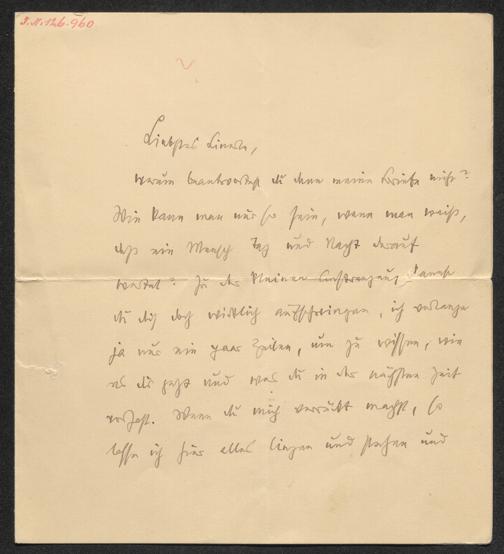 I.N. 126.960
Liebstes Linerle,
warum beantwortest du denn meine Briefe nicht?
Wie kann man nur so sein, wenn man weiß,
daß ein Mensch Tag und Nacht darauf
wartet? Zu der kleinen Anstrengung kannst
du dich doch wirklich aufschwingen, ich verlange
ja nur ein paar Zeilen, um zu wissen, wie
es dir geht und was du in der nächsten Zeit
vorhast. Wenn du mich verrückt machst, so
lasse ich hier alles liegen und stehen und